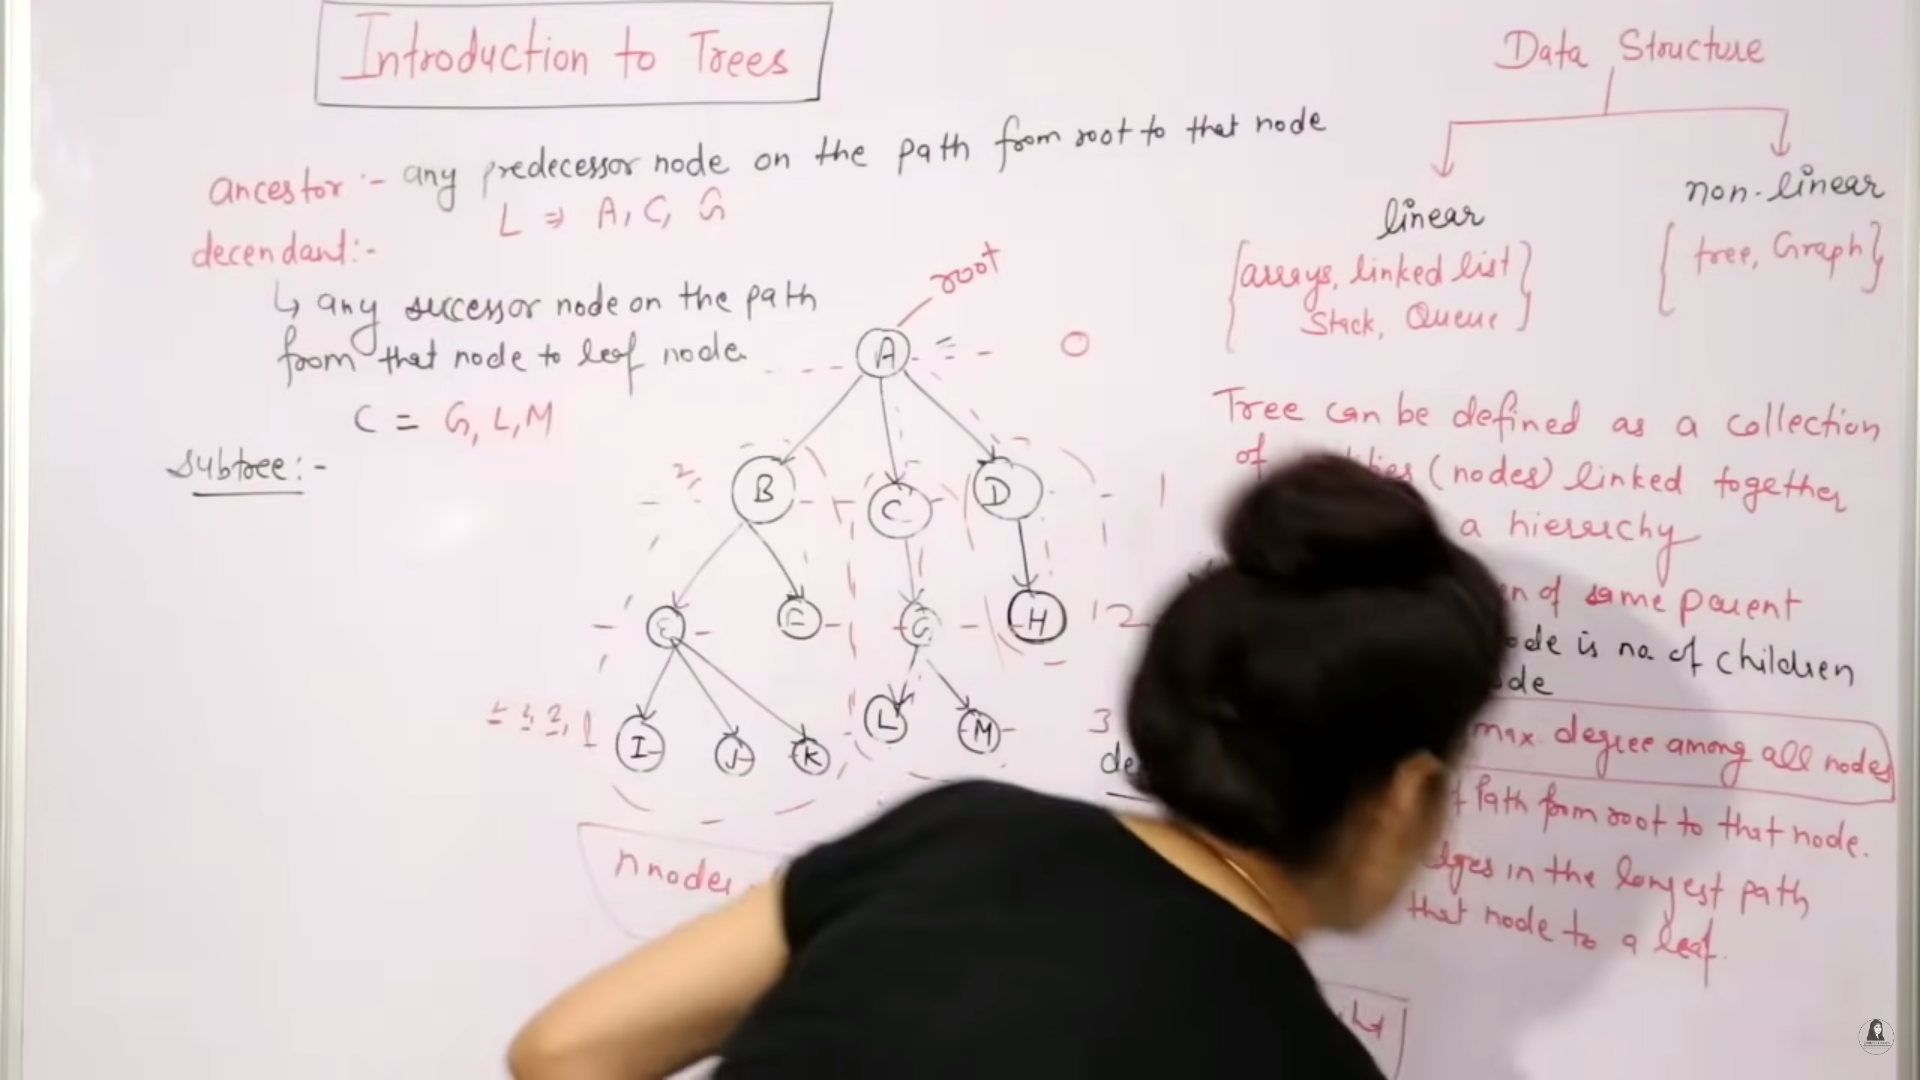 Introduction to Trees
ancestor :- any predecessor node on the path from root to that node
L => A, C, G
decendant:-
↳ any successor node on the path
from that node to leaf node
C = G, L, M
Subtree:-
root
A
0
B
C
D
1
E
G
H
2
I
J
K
L
M
3
n nodes
Data Structure
linear
non-linear
{arrays, linked list
Stack, Queue}
{tree, Graph}
Tree can be defined as a collection
of (nodes) linked together
a hierarchy
of same parent
is no. of children
max. degree among all nodes
Path from root to that node.
in the longest path
that node to a leaf.